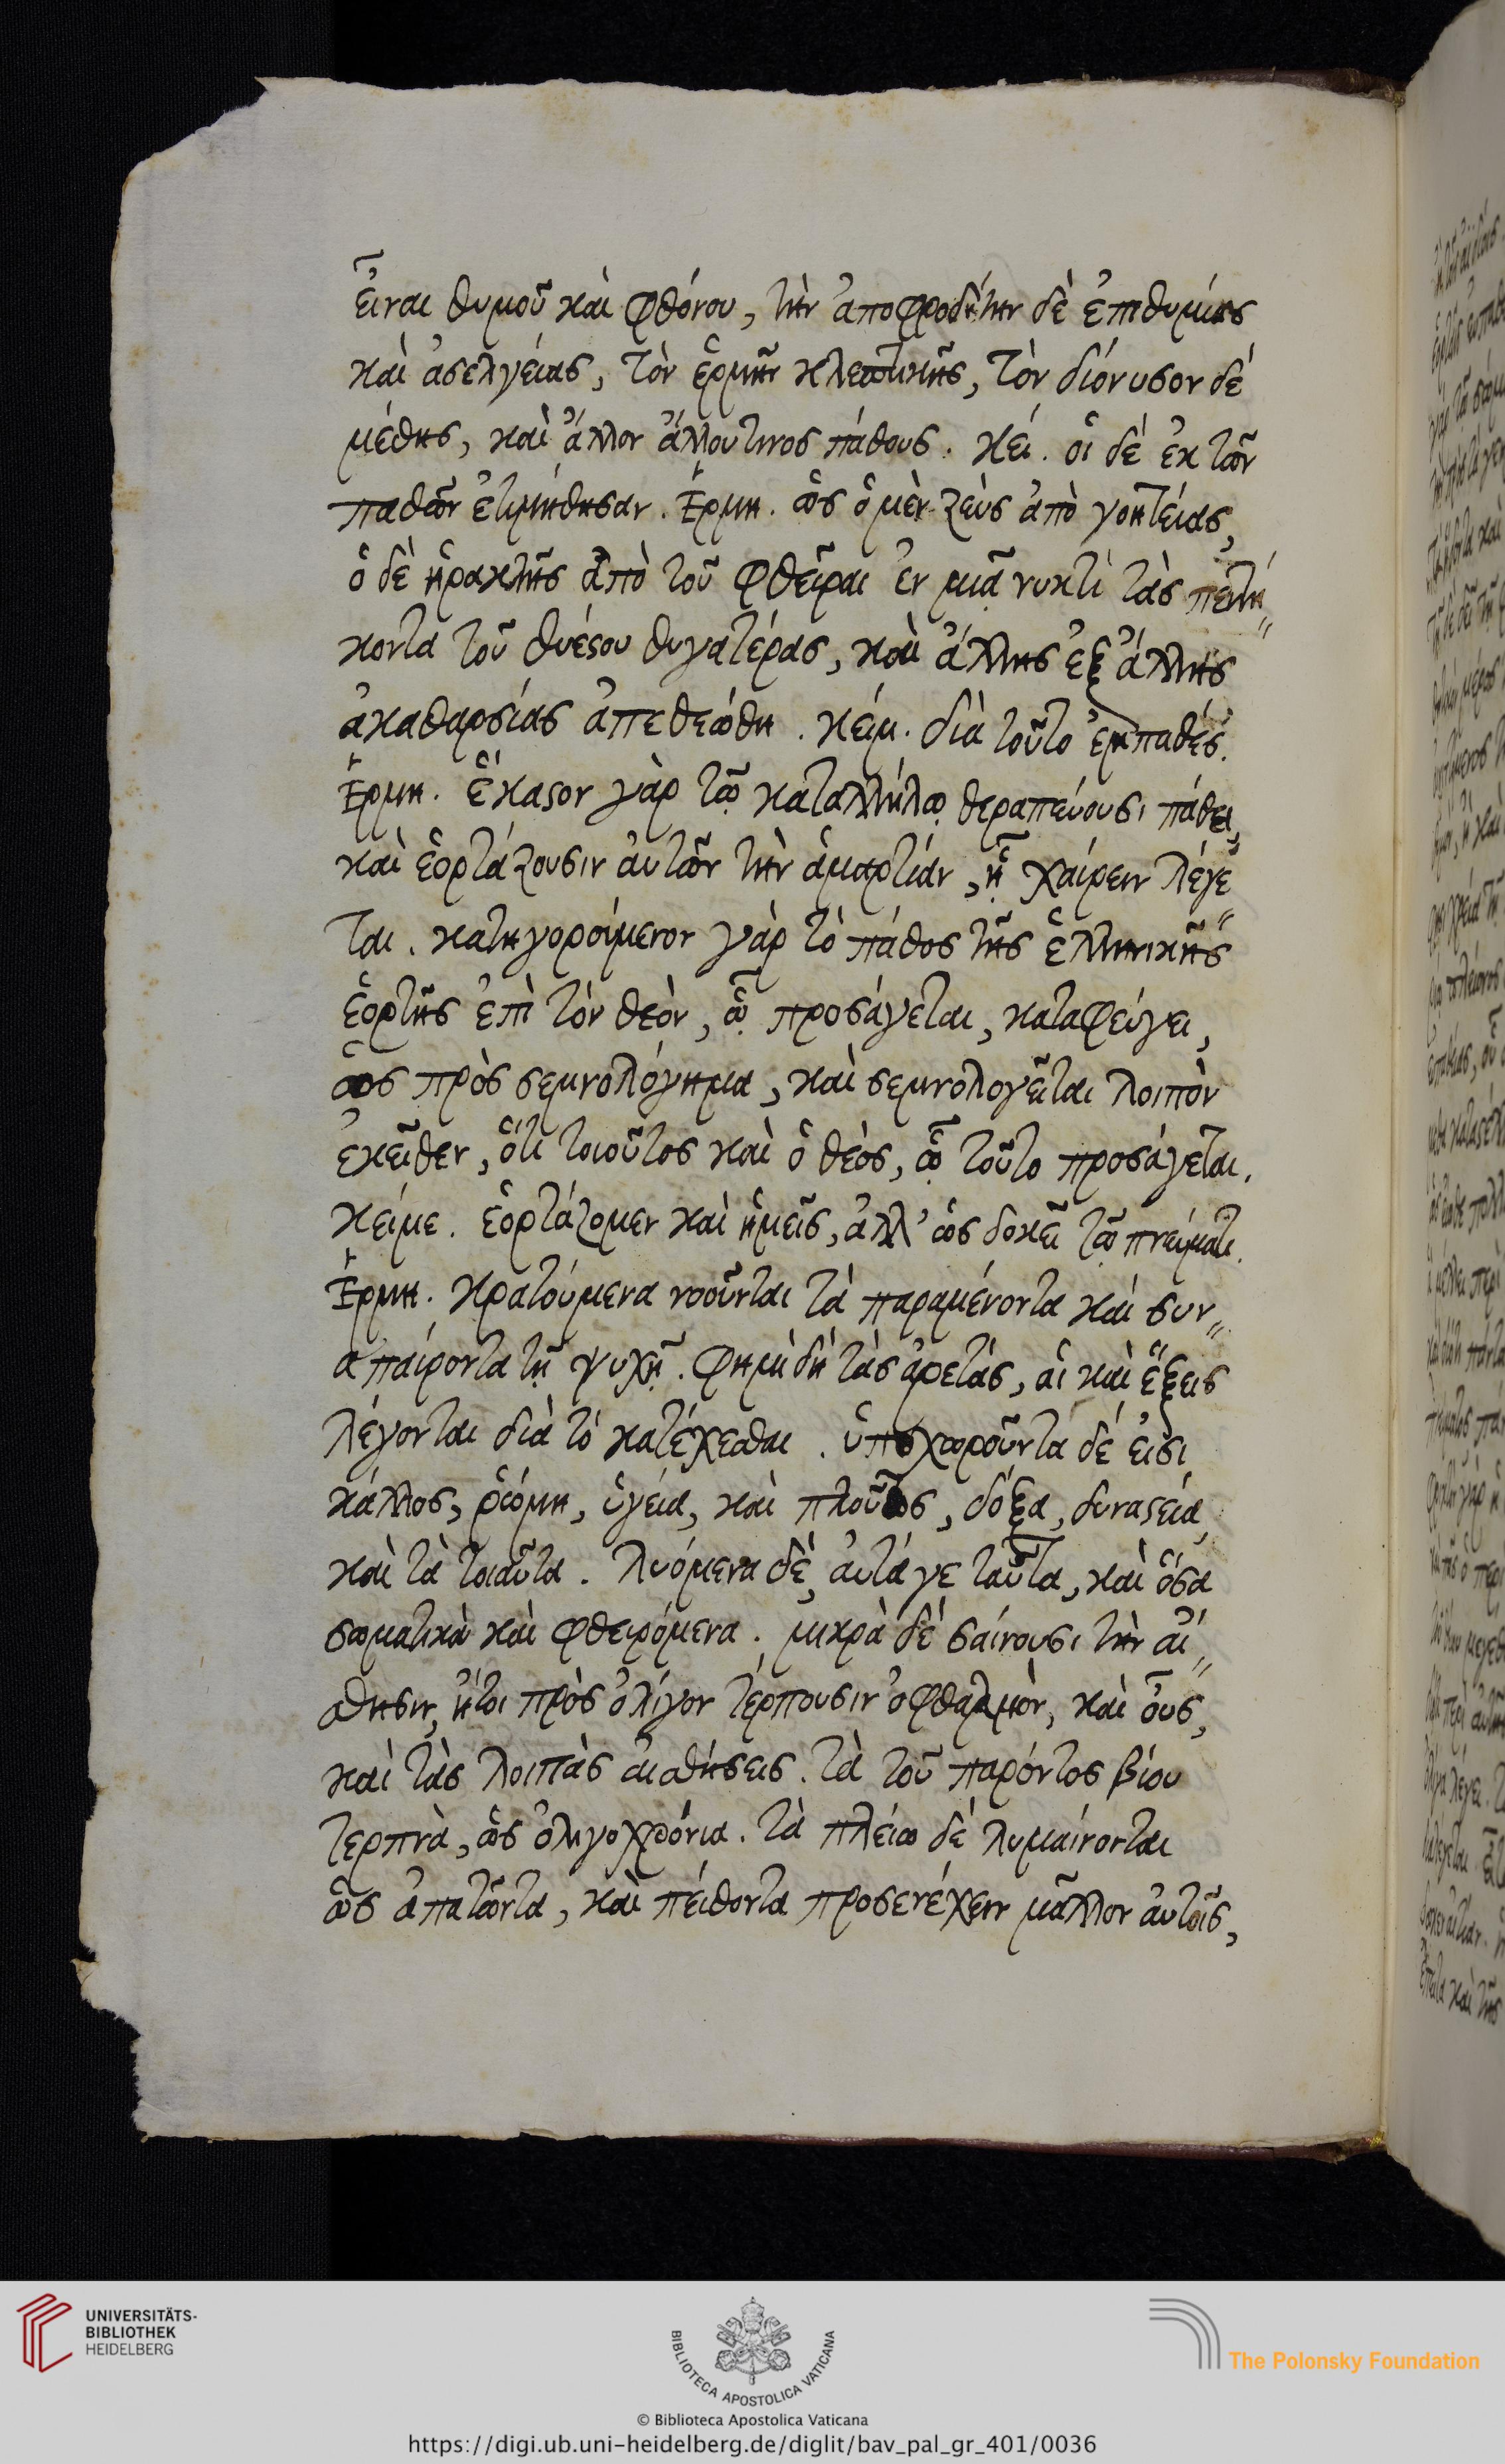 εἶναι θυμοῦ καὶ φθόνου, τὴν ἀποφροδίτην δὲ ἐπιθυμίας
καὶ ἀσελγείας, τὸν ἑρμῆν κλεπτικῆς, τὸν διόνυσον δὲ
μέθης, καὶ ἄλλον ἄλλου τινος πάθους. κεί. οἱ δὲ ἐκ τῶν
παθῶν ἐτιμήθησαν. Ἑρμη. ὡς ὁ μὲν ζεὺς ἀπὸ γοητείας,
ὁ δὲ ἡρακλῆς ἀπὸ τοῦ φθεῖραι ἐν μιᾷ νυκτὶ τὰς πεντή„
κοντα τοῦ θυέστου θυγατέρας, καὶ ἄλλης ἐξ ἄλλης
ἀκαθαρσίας ἀπεθεώθη. κείμ. διὰ τοῦτο ἐμπαθές.
Ἑρμη. ἕκαστον γὰρ τῷ καταλλήλῳ θεραπεύουσι πάθει,
καὶ ἑορτάζουσιν αὐτῶν τὴν ἁμαρτίαν, ᾗ χαίρειν λέγε„
ται. κατηγορούμενον γὰρ τὸ πάθος τῆς ἑλληνικῆς
ἑορτῆς ἐπὶ τὸν θεὸν, ᾧ προσάγεται, καταφεύγει,
ὡς πρὸς σεμνολόγημα, καὶ σεμνολογεῖται λοιπὸν
ἐκεῖθεν, ὅτι τοιοῦτος καὶ ὁ θεὸς, ᾧ τοῦτο προσάγεται.
κείμε. ἑορτάζομεν καὶ ἡμεῖς, ἀλλ' ὡς δοκεῖ τῷ πνεύματι.
Ἑρμη. κρατούμενα νοοῦνται τὰ παραμένοντα καὶ συν„
απαίροντα τῇ ψυχῇ. φημὶ δὴ τὰς ἀρετάς, αἳ καὶ ἕξεις
λέγονται διὰ τὸ κατέχεσθαι. ὑποχωροῦντα δέ εἰσι
κάλλος, ῥώμη, ὑγεία, καὶ πλοῦτος, δόξα, δυναστεία,
καὶ τὰ τοιαῦτα. λυόμενα δὲ, αὐτά γε ταῦτα, καὶ ὅσα
σωματικὰ καὶ φθειρόμενα. μικρὰ δὲ σαίνουσι τὴν αἴ„
σθησιν, ἤτοι πρὸς ὀλίγον τέρπουσιν ὀφθαλμὸν, καὶ οὖς,
καὶ τὰς λοιπὰς αἰσθήσεις. τὰ τοῦ παρόντος βίου
τερπνὰ, ὡς ὀλιγοχρόνια. τὰ πλείω δὲ λυμαίνονται
ὡς ἀπατῶντα, καὶ πείθοντα προσενέχειν μᾶλλον αὐτοῖς,
UNIVERSITÄTS-
BIBLIOTHEK
HEIDELBERG
BIBLIOTECA APOSTOLICA VATICANA
The Polonsky Foundation
© Biblioteca Apostolica Vaticana
https://digi.ub.uni-heidelberg.de/diglit/bav_pal_gr_401/0036